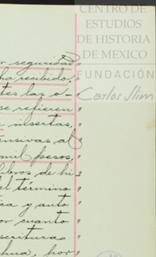 CENTRO DE
ESTUDIOS
DE HISTORIA
DE MEXICO
FUNDACIÓN
Carlos Slim
or seguridad
recibido,
tes las
se refieren
insertas,
ensivas al
mil pesos,
libros de hi
el término
ca y auto
or cuanto
scrituras
hua, por